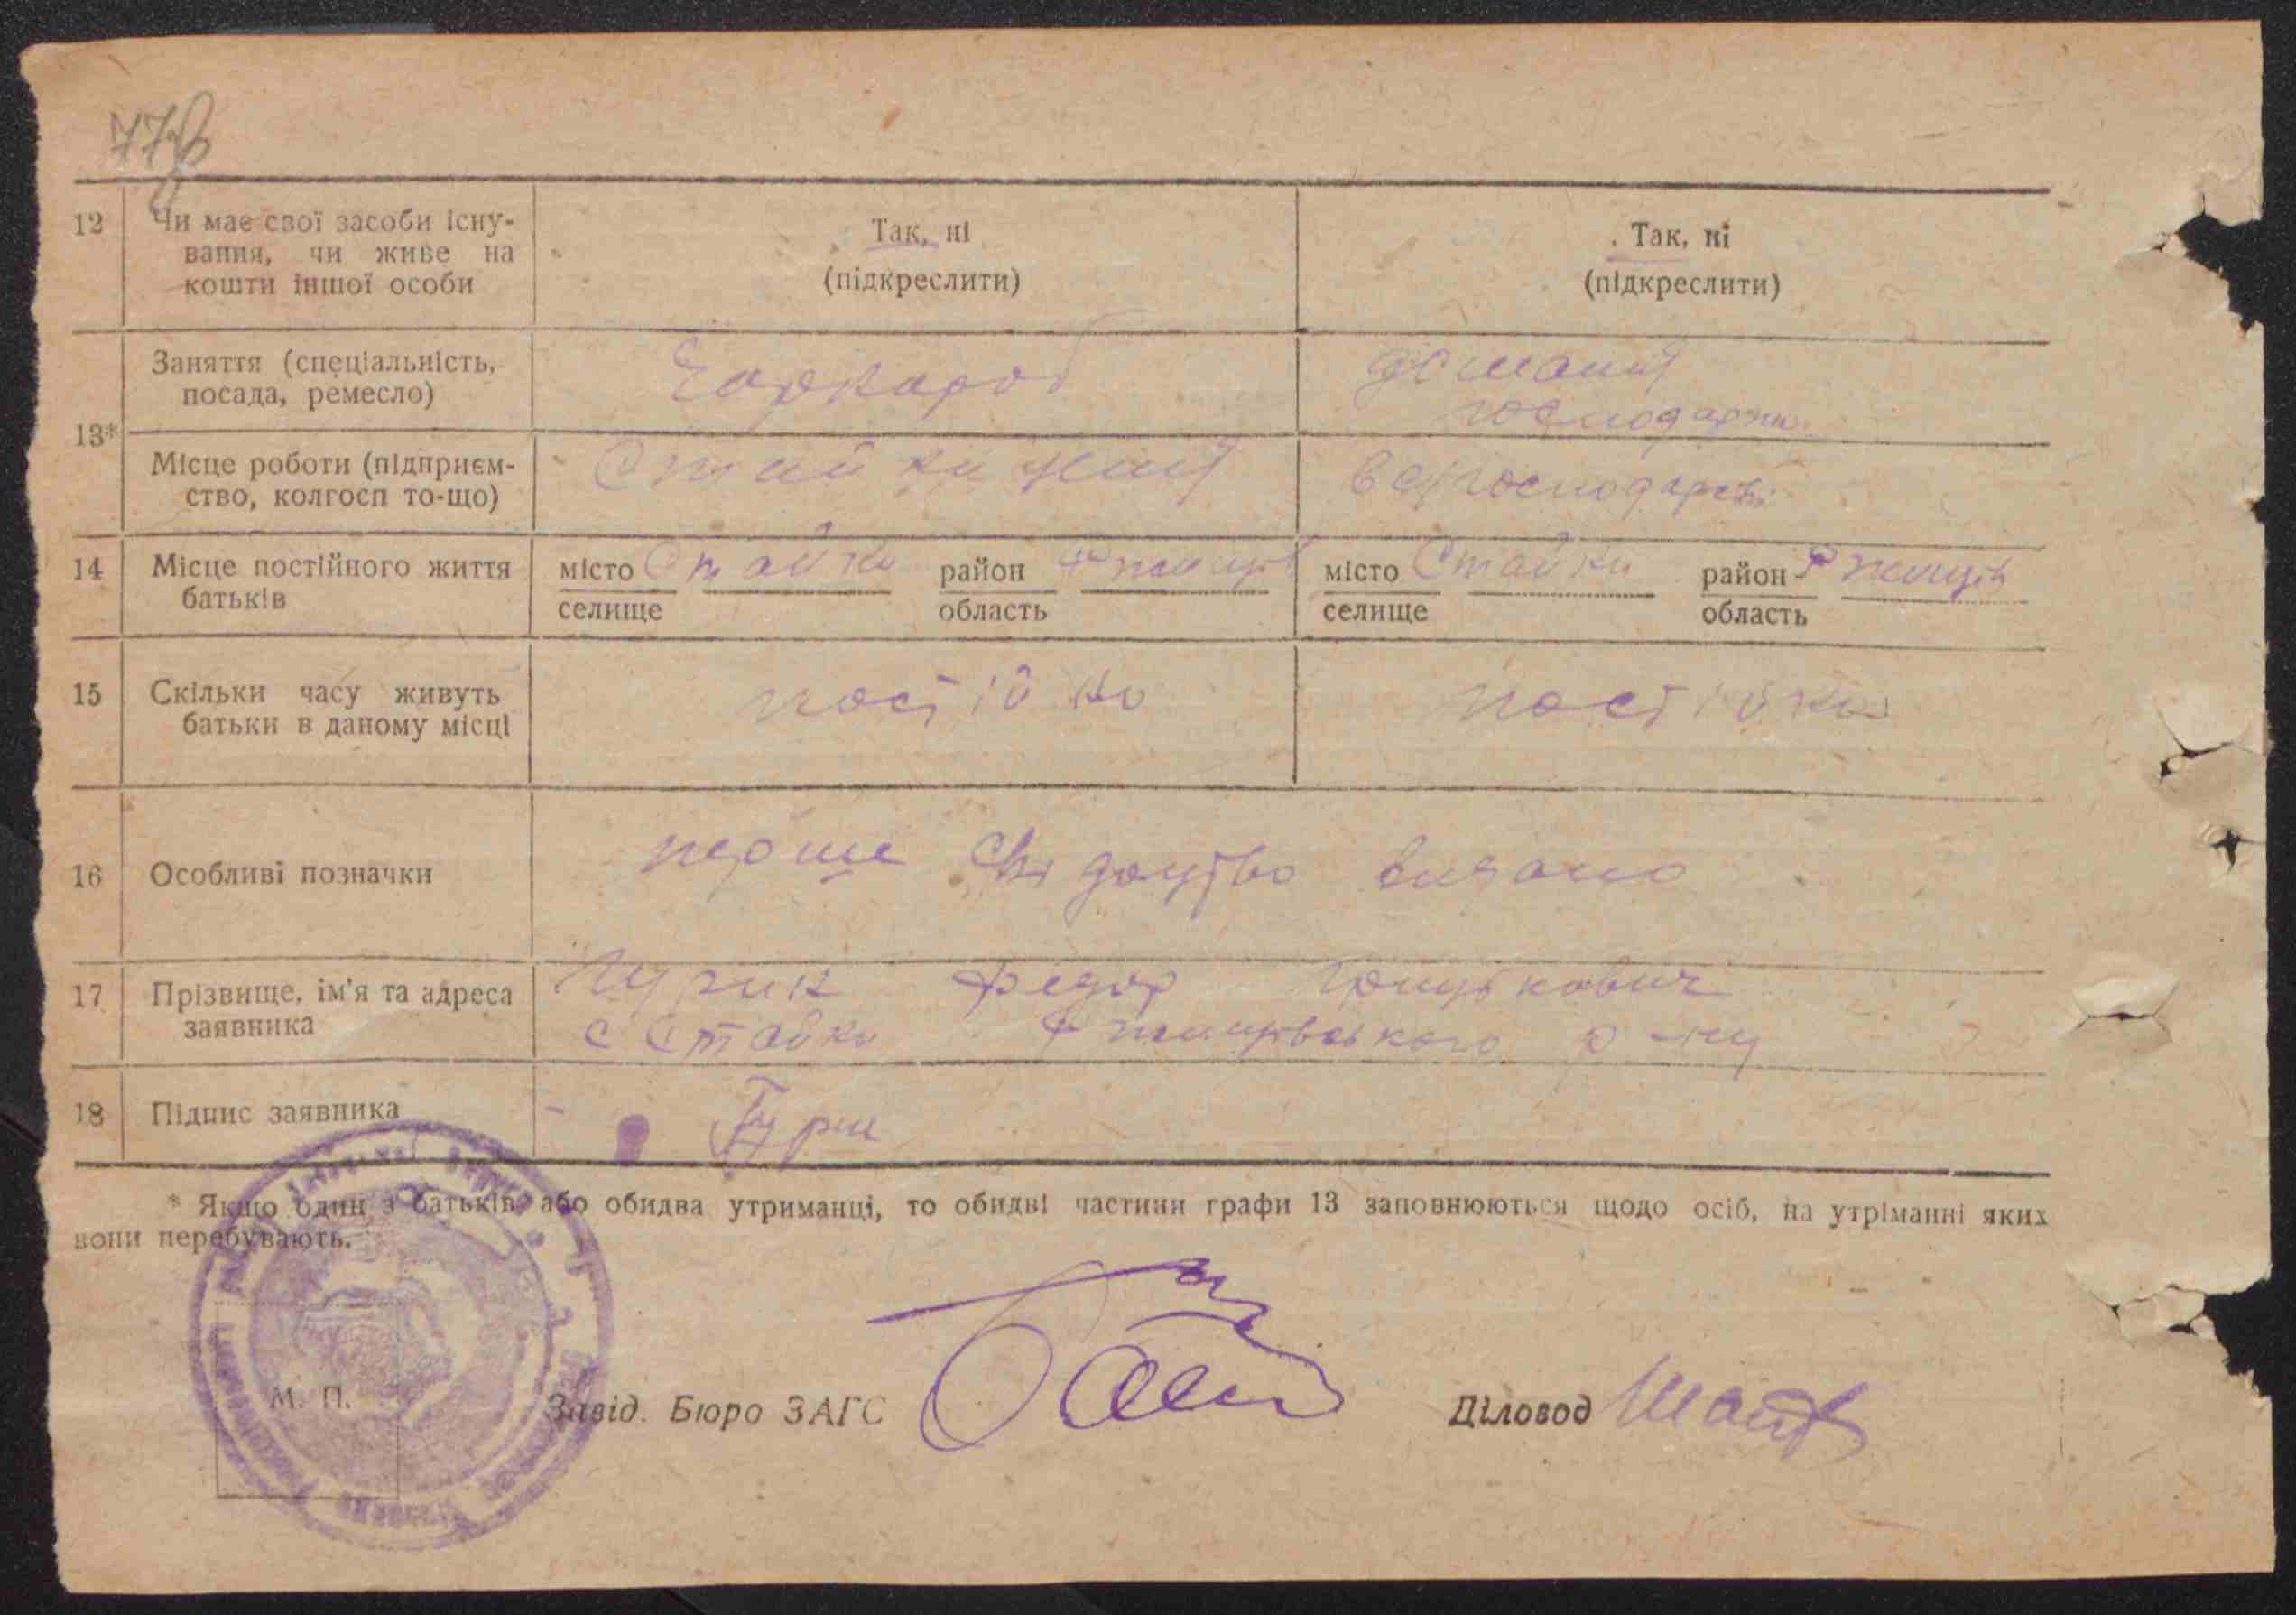 77
12 Чи має свої засоби існу-
вання, чи живе на
кошти іншої особи
Так, ні
(підкреслити)
Так, ні
(підкреслити)
13*
Заняття (спеціальність,
посада, ремесло)
домашня
господарка
Місце роботи (підприєм-
ство, колгосп то-що)
Стайки
в с/господарстві
14 Місце постійного життя
батьків
місто Стайки район Ржищів
селище область
місто Стайки район Ржищів
селище область
15 Скільки часу живуть
батьки в даному місці
постійно
постійно
16 Особливі позначки
перше свідоцтво видано
17 Прізвище, ім'я та адреса
заявника
Федор
с Стайки Ржищівського р-ну
18 Підпис заявника
* Якщо один з батьків, або обидва утриманці, то обидві частини графи 13 заповнюються щодо осіб, на утріманні яких
вони перебувають.
М. П.
Завід. Бюро ЗАГС
Діловод